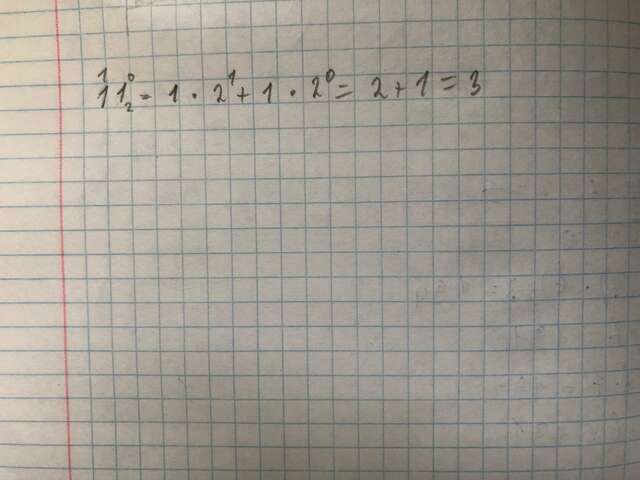 1¹1⁰₂ = 1 · 2¹ + 1 · 2⁰ = 2 + 1 = 3